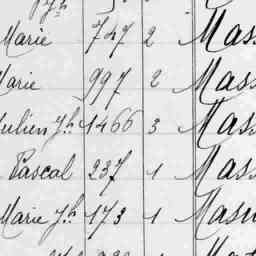 Marie 747 2 Mass
Marie 997 2 Mass
Julien Jh 1466 3 Mass
Pascal 237 1 Mass
Marie Jh 173 1 Masu